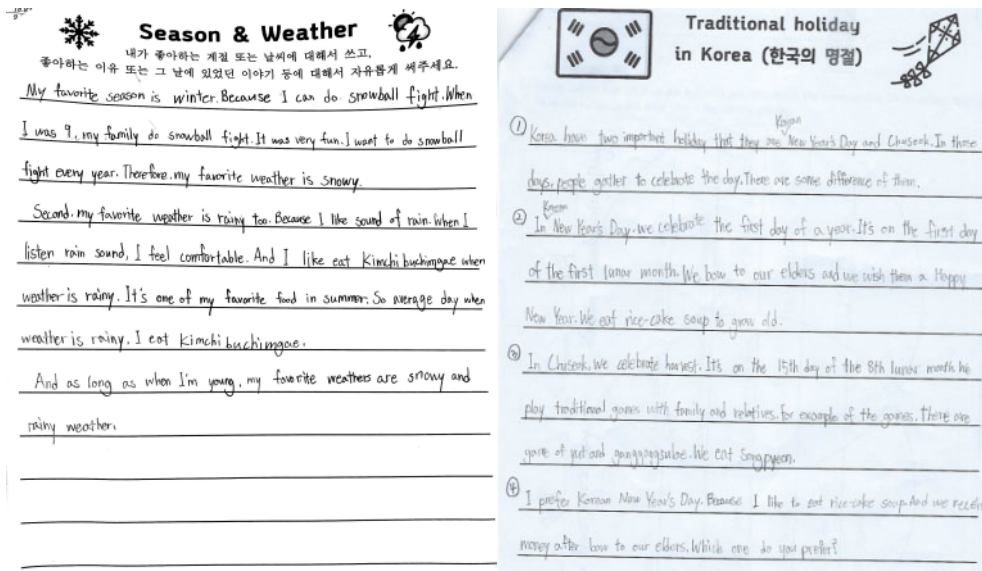 Season & Weather
내가 좋아하는 계절 또는 날씨에 대해서 쓰고,
좋아하는 이유 또는 그 날에 있었던 이야기 등에 대해서 자유롭게 써주세요.
My favorite season is winter. Because I can do snowball fight. When
I was 9, my family do snowball fight. It was very fun. I want to do snowball
fight every year. Therefore, my favorite weather is snowy.
Second, my favorite weather is rainy too. Because I like sound of rain. When I
listen rain sound, I feel comfortable. And I like eat Kimchi buchimgae when
weather is rainy. It's one of my favorite food in summer. So average day when
weather is rainy, I eat Kimchi buchimgae.
And as long as when I'm young, my favorite weathers are snowy and
rainy weather.
Traditional holiday
in Korea (한국의 명절)
Korean
① Korea have two important holiday that they are New Year's Day and Chuseok. In those
days, people gather to celebrate the day. There are some difference of them.
Korean
② In New Year's Day, we celebrate the first day of a year. It's on the first day
of the first lunar month. We bow to our elders and we wish them a Happy
New Year. We eat rice-cake soup to grow old.
③ In Chuseok, we celebrate harvest. It's on the 15th day of the 8th lunar month. We
play traditional games with family and relatives. For example of the games, There are
game of yut and ganggangsulae. We eat Songpyeon.
④ I prefer Korean New Year's Day. Because I like to eat rice-cake soup. And we receive
money after bow to our elders. Which one do you prefer?